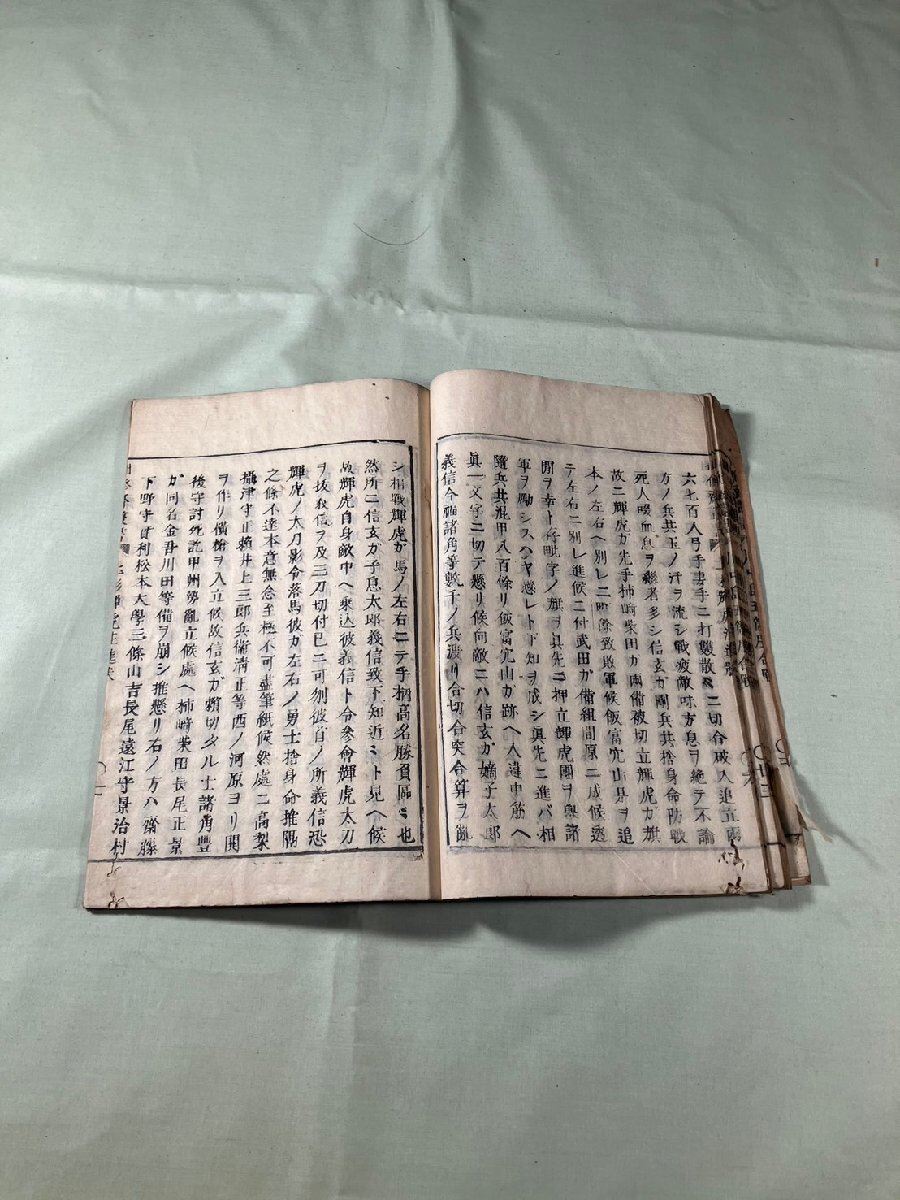 六七百人弓手妻手ニ打散ニ切合破入追立両
方ノ兵共玉ノ汗ヲ流シ戦疲敵味方息ヲ絶テ不論
死人喫血息ヲ継者多シ信玄カ兵共捨身命防戦
故ニ輝虎カ先手柿崎柴田カ両備被切立輝虎カ旗
本ノ左右ヘ別レニ町際致敗軍候飯富穴山是ヲ追
テ左右ニ別レ進候ニ付武田カ備組間原ニ成候透
間ヲ幸ト毘字ノ旗ヲ真先ニ押立御虎團ヲ與諸
軍ヲ勵シスハヤ懸レト下知ヲ成シ真先ニ進バ相
隨兵共混甲八百餘リ飯富穴山カ跡ヘ入違中筋ヘ
真一文字ニ切テ懸リ候向敵ニハ信玄カ嫡子太郎
義信今福諸角等數千ノ兵渡リ合切合突合算ヲ
シ相戦輝虎カ馬ノ左右ニテ手柄高名勝負區ミ也
然所ニ信玄カ子息太郎義信致下知近ミト見ヘ候
故輝虎自身敵中ヘ乗込彼義信ト令參會輝虎太刀
ヲ抜取儀ヲ及三刀切付已ニ可刎彼首ノ所義信恐
輝虎ノ太刀影令落馬彼カ左右ノ勇士捨身命推隔
之條不達本意無念至極不可盡筆紙候然處ニ高梨
攝津守正頼井上三郎兵衛清正等西ノ河原ヨリ圓
ヲ作リ横槍ヲ入立候故信玄カ頼切タル士諸角豊
後守討死訖甲州勢亂立候處ヘ柿崎柴田長尾正景
カ同名金吾川田等備ヲ崩シ推懸リ右ノ方ハ齋藤
下野守實利松本大學三條山吉長尾遠江守景治村